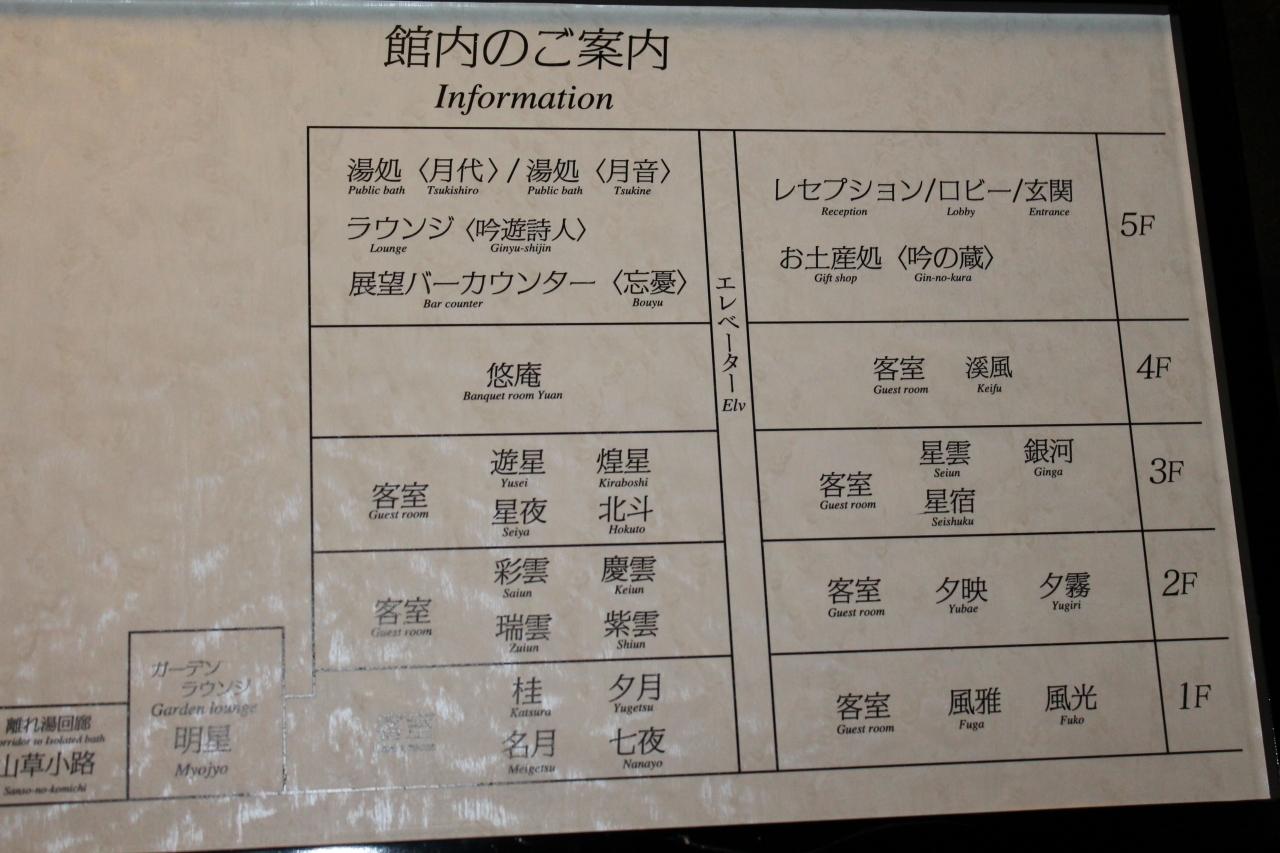 館内のご案内
Information
湯処〈月代〉/湯処〈月音〉
Public bath Tsukishiro Public bath Tsukine
ラウンジ〈吟遊詩人〉
Lounge Ginyu-shijin
展望バーカウンター〈忘憂〉
Bar counter Bouyu
エレベーター Elv
レセプション/ロビー/玄関
Reception Lobby Entrance
お土産処〈吟の蔵〉
Gift shop Gin-no-kura
5F
悠庵
Banquet room Yuan
客室 溪風
Guest room Keifu
4F
遊星 煌星
Yusei Kiraboshi
客室
Guest room
星夜 北斗
Seiya Hokuto
星雲 銀河
Seiun Ginga
客室
Guest room
星宿
Seishuku
3F
彩雲 慶雲
Saiun Keiun
客室
Guest room
瑞雲 紫雲
Zuiun Shiun
客室 夕映 夕霧
Guest room Yubae Yugiri
2F
桂 夕月
Katsura Yugetsu
客室
名月 七夜
Meigetsu Nanayo
客室 風雅 風光
Guest room Fuga Fuko
1F
ガーデン
ラウンジ
Garden lounge
明星
Myojyo
離れ湯回廊
to Isolated bath
山草小路
Sanso-no-komichi